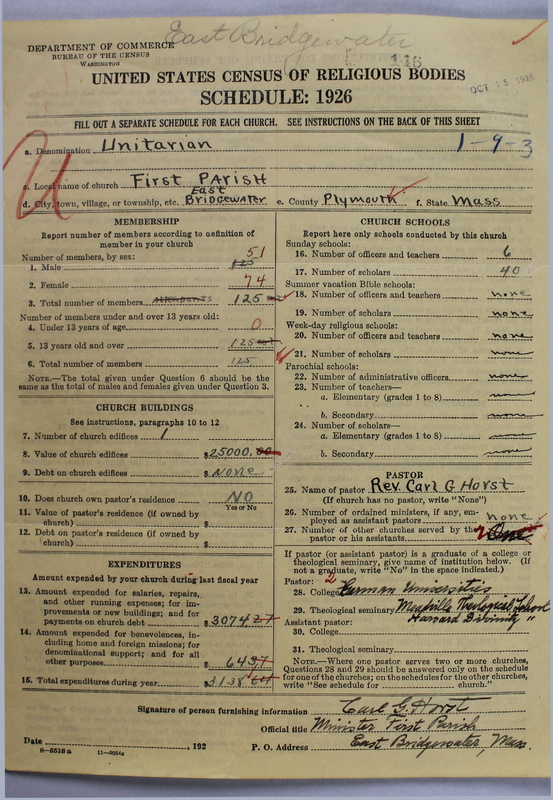 East Bridgewater
DEPARTMENT OF COMMERCE
BUREAU OF THE CENSUS
WASHINGTON
146
OCT 15 1926
UNITED STATES CENSUS OF RELIGIOUS BODIES
SCHEDULE: 1926
FILL OUT A SEPARATE SCHEDULE FOR EACH CHURCH. SEE INSTRUCTIONS ON THE BACK OF THIS SHEET
a. Denomination Unitarian 1-9-3
c. Local name of church First Parish
d. City, town, village, or township, etc. East Bridgewater e. County Plymouth f. State Mass
MEMBERSHIP
Report number of members according to definition of
member in your church
Number of members, by sex:
1. Male 51
2. Female 74
3. Total number of members 125
Number of members under and over 13 years old:
4. Under 13 years of age 0
5. 13 years old and over 125
6. Total number of members 125
NOTE.—The total given under Question 6 should be
the same as the total of males and females given under Question 3.
CHURCH BUILDINGS
See instructions, paragraphs 10 to 12
7. Number of church edifices 1
8. Value of church edifices $25000.00
9. Debt on church edifices $None
10. Does church own pastor's residence NO
Yes or No
11. Value of pastor's residence (if owned by
church) $
12. Debt on pastor's residence (if owned by
church) $
EXPENDITURES
Amount expended by your church during last fiscal year
13. Amount expended for salaries, repairs,
and other running expenses; for im-
provements or new buildings; and for
payments on church debt $307427
14. Amount expended for benevolences, in-
cluding home and foreign missions; for
denominational support; and for all
other purposes $6437
15. Total expenditures during year $3138 64
CHURCH SCHOOLS
Report here only schools conducted by this church
Sunday schools:
16. Number of officers and teachers 6
17. Number of scholars 40
Summer vacation Bible schools:
18. Number of officers and teachers none
19. Number of scholars none
Week-day religious schools:
20. Number of officers and teachers none
21. Number of scholars none
Parochial schools:
22. Number of administrative officers none
23. Number of teachers—
a. Elementary (grades 1 to 8) none
b. Secondary none
24. Number of scholars—
a. Elementary (grades 1 to 8) none
b. Secondary none
PASTOR
25. Name of pastor Rev. Carl G. Horst
(If church has no pastor, write "None")
26. Number of ordained ministers, if any, em-
ployed as assistant pastors none
27. Number of other churches served by the
pastor or his assistants One
If pastor (or assistant pastor) is a graduate of a college or
theological seminary, give name of institution below. (If
not a graduate, write "No" in the space indicated.)
Pastor: 2
28. College German Universities
29. Theological seminary Meadville Theological School
Harvard Divinity "
Assistant pastor:
30. College
31. Theological seminary
NOTE.—Where one pastor serves two or more churches,
Questions 28 and 29 should be answered only on the schedule
for one of the churches; on the schedules for the other churches,
write "See schedule for church."
Signature of person furnishing information Carl G. Horst
Official title Minister First Parish
Date , 192 P. O. Address East Bridgewater, Mass.
8—5518 a 11—9054a